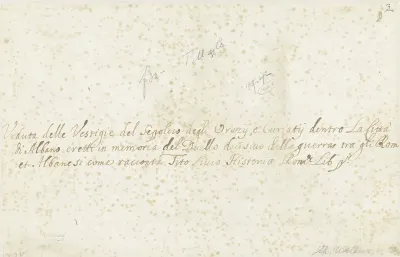 2
Veduta delle Vestigie del Sepolcro degli Orazy, e Curiatij dentro La Città
d'Albano, eretto in memoria del Duello decisivo delle guerre tra gli Rom:
et Albanesi come racconta Tito Livio Historia Rom: Lib p: